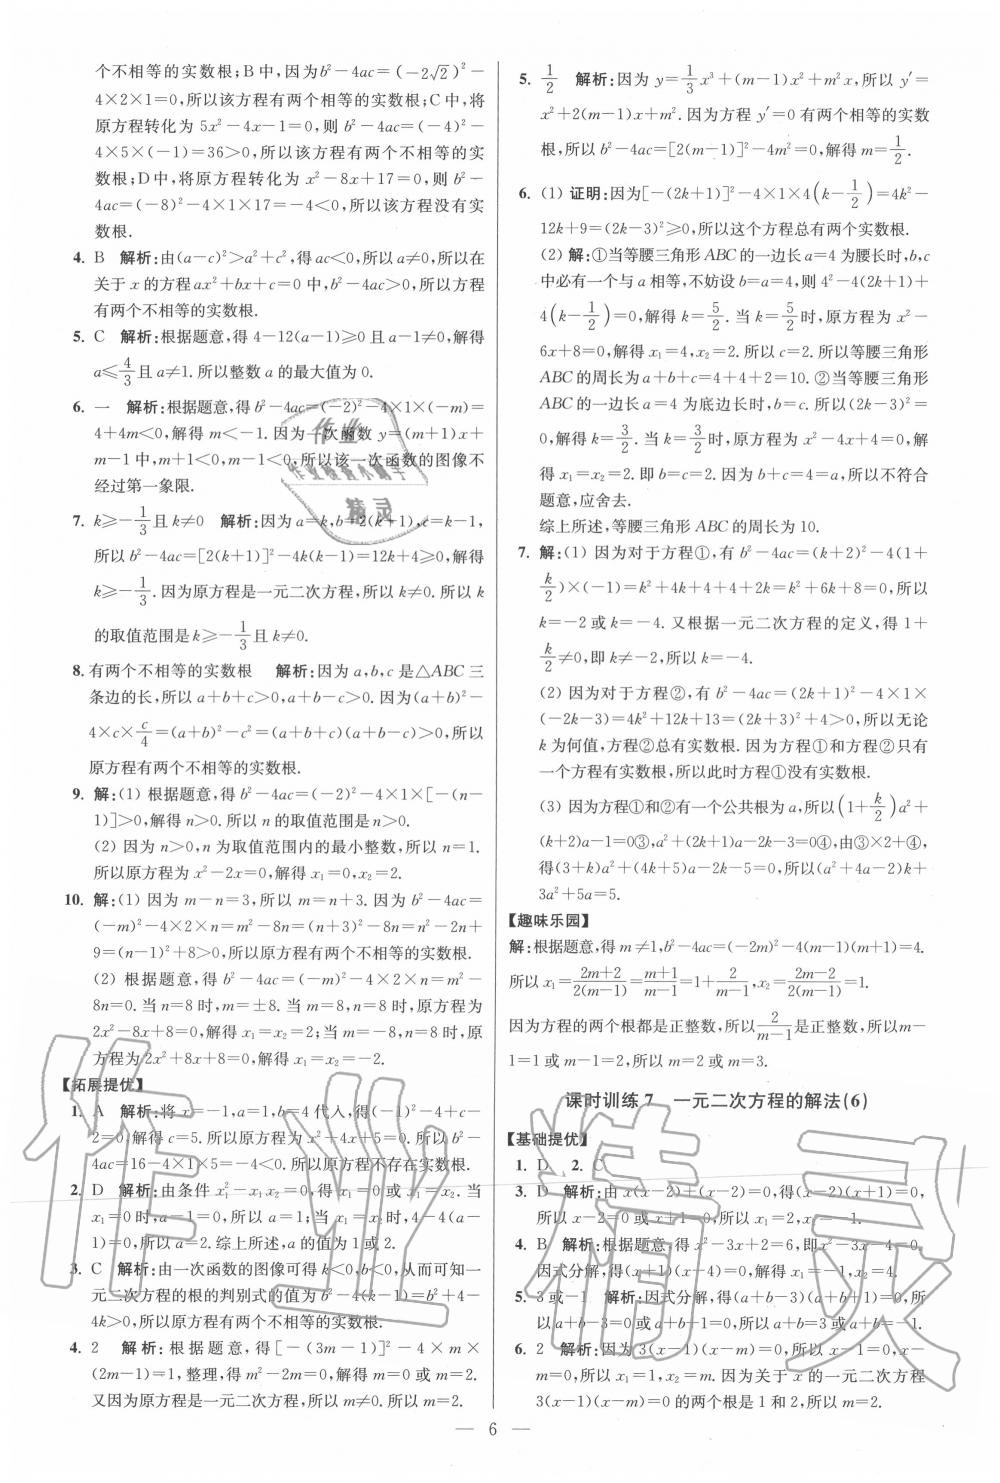 个不相等的实数根;B中,因为b²－4ac=(－2√2)²－
4×2×1=0,所以该方程有两个相等的实数根;C中,将
原方程转化为 5x²－4x－1=0,则 b²－4ac=(－4)²－
4×5×(－1)=36>0,所以该方程有两个不相等的实
数根;D中,将原方程转化为 x²－8x＋17=0,则b²－
4ac=(－8)²－4×1×17=－4<0,所以该方程没有实
数根.
4. B 解析:由(a－c)²>a²＋c²,得ac<0,所以a≠0,所以在
关于 x 的方程ax²＋bx＋c=0 中,b²－4ac>0,所以方程
有两个不相等的实数根.
5. C 解析:根据题意,得 4－12(a－1)≥0且 a－1≠0,解得
a≤4/3且 a≠1.所以整数 a 的最大值为 0.
6. 一 解析:根据题意,得b²－4ac=(－2)²－4×1×(－m)=
4＋4m<0,解得 m<－1.因为一次函数 y=(m＋1)x＋
m－1 中,m＋1<0,所以该一次函数的图像不
经过第一象限.
7. k≥－1/3且 k≠0 解析:因为a=k,b=2(k＋1),c=k－1,
所以 b²－4ac=[2(k＋1)]²－4k(k－1)=12k＋4≥0,解得
k≥－1/3.因为原方程是一元二次方程,所以 k≠0.所以 k
的取值范围是 k≥－1/3且 k≠0.
8. 有两个不相等的实数根 解析:因为 a,b,c 是△ABC 三
条边的长,所以 a＋b＋c>0,a＋b－c>0.因为(a＋b)²－
4×c×c/4=(a＋b)²－c²=(a＋b＋c)(a＋b－c)>0,所以
原方程有两个不相等的实数根.
9. 解:(1) 根据题意,得 b²－4ac=(－2)²－4×1×[－(n－
1)]>0,解得 n>0.所以 n 的取值范围为 n>0.
(2) 因为 n>0,n 为取值范围内的最小整数,所以 n=1.
所以原方程为 x²－2x=0,解得 x₁=0,x₂=2.
10. 解:(1) 因为 m－n=3,所以 m=n＋3.因为 b²－4ac=
(－m)²－4×2×n=m²－8n=(n＋3)²－8n=n²－2n＋
9=(n－1)²＋8>0,所以该方程有两个不相等的实数根.
(2) 根据题意,得 b²－4ac=(－m)²－4×2×n=m²－
8n=0.当 n=8 时,m=±8.当 m=8,n=8 时,原方程为
2x²－8x＋8=0,解得 x₁=x₂=2;当 m=－8,n=8 时,原
方程为2x²＋8x＋8=0,解得 x₁=x₂=－2.
【拓展提优】
1. A 解析:将 x=－1,a=1,b=4 代入,得(－1)²－4＋c－
2=0,解得 c=5.所以原方程为 x²＋4x＋5=0.所以 b²－
4ac=16－4×1×5=－4<0.所以原方程不存在实数根.
2. D 解析:由条件 x₁²－x₁x₂=0,得 x₁=0 或 x₁=x₂.当
x₁=0 时,a－1=0,所以 a=1;当 x₁=x₂时,4－4(a－
1)=0,所以 a=2.综上所述,a 的值为 1 或 2.
3. C 解析:由一次函数的图像可得 k<0,b<0,从而可知一
元二次方程的根的判别式的值为 b²－4(k－1)=b²＋4－
4k>0,所以原方程有两个不相等的实数根.
4. 2 解析:根据题意,得[－(3m－1)]²－4×m×
(2m－1)=1,整理,得 m²－2m=0,解得 m=0 或 m=2.
又因为原方程是一元二次方程,所以 m≠0.所以 m=2.
5. 1/2 解析:因为 y=1/3x³＋(m－1)x²＋m²x,所以 y′=
x²＋2(m－1)x＋m².因为方程 y′=0 有两个相等的实数
根,所以 b²－4ac=[2(m－1)]²－4m²=0,解得 m=1/2.
6. (1) 证明:因为[－(2k＋1)]²－4×1×4(k－1/2)=4k²－
12k＋9=(2k－3)²≥0,所以这个方程总有两个实数根.
(2) 解:①当等腰三角形 ABC 的一边长 a=4 为腰长时,b,c
中必有一个与 a 相等,不妨设 b=a=4,则 4²－4(2k＋1)＋
4(k－1/2)=0,解得 k=5/2.当 k=5/2时,原方程为 x²－
6x＋8=0,解得 x₁=4,x₂=2.所以 c=2.所以等腰三角形
ABC 的周长为 a＋b＋c=4＋4＋2=10.②当等腰三角形
ABC 的一边长 a=4 为底边长时,b=c.所以(2k－3)²=
0,解得 k=3/2.当 k=3/2时,原方程为 x²－4x＋4=0,解
得 x₁=x₂=2.即 b=c=2.因为 b＋c=4=a,所以不符合
题意,应舍去.
综上所述,等腰三角形 ABC 的周长为 10.
7. 解:(1) 因为对于方程①,有 b²－4ac=(k＋2)²－4(1＋
k/2)×(－1)=k²＋4k＋4＋4＋2k=k²＋6k＋8=0,所以
k=－2 或 k=－4.又根据一元二次方程的定义,得 1＋
k/2≠0,即 k≠－2,所以 k=－4.
(2) 因为对于方程②,有 b²－4ac=(2k＋1)²－4×1×
(－2k－3)=4k²＋12k＋13=(2k＋3)²＋4>0,所以无论
k 为何值,方程②总有实数根.因为方程①和方程②只有
一个方程有实数根,所以此时方程①没有实数根.
(3) 因为方程①和②有一个公共根为 a,所以(1＋k/2)a²＋
(k＋2)a－1=0③,a²＋(2k＋1)a－2k－3=0④,由③×2＋④,
得(3＋k)a²＋(4k＋5)a－2k－5=0,所以(a²＋4a－2)k＋
3a²＋5a=5.
【趣味乐园】
解:根据题意,得 m≠1,b²－4ac=(－2m)²－4(m－1)(m＋1)=4.
所以 x₁=2m＋2/2(m－1)=m＋1/m－1=1＋2/m－1,x₂=2m－2/2(m－1)=1.
因为方程的两个根都是正整数,所以2/m－1是正整数,所以m－
1=1 或 m－1=2,所以 m=2 或 m=3.
课时训练 7 一元二次方程的解法(6)
【基础提优】
1. D 2. C
3. D 解析:由 x(x－2)＋(x－2)=0,得(x－2)(x＋1)=0,
所以 x－2=0 或 x＋1=0,所以 x₁=2,x₂=－1.
4. B 解析:根据题意,得 x²－3x＋2=6,即x²－3x－4=0,
因式分解,得(x＋1)(x－4)=0,解得 x₁=－1,x₂=4.
5. 3 或－1 解析:因式分解,得(a＋b－3)(a＋b＋1)=0,所
以 a＋b－3=0 或 a＋b＋1=0,所以 a＋b=3 或 a＋b=－1.
6. 2 解析:因为 3(x－1)(x－m)=0,所以 x－1=0,x－m=
0,所以 x₁=1,x₂=m.因为关于 x 的一元二次方程
3(x－1)(x－m)=0 的两个根是 1 和 2,所以 m=2.
— 6 —
作业精灵